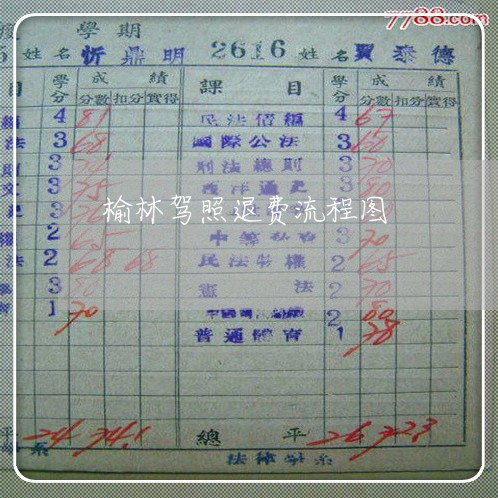 7788.com
學期
姓名 忻鼎明 2616 姓名 賈泰德
目 學分 成績 課目 學分 成績
分數 扣分 實得 分數 扣分 實得
4 81 民法債編 4 67
法 3 68 國際公法 3 60
3 刑法總則 3 70
3 75 西洋通史 3 80
3
榆林驾照退费流程图
2 65 3 70
法 2 68 68 民法物權 2 65
3 80 憲法 2 70
1 70 2 80
普通體育 1 78
平 24 74.1 總平 26 72.3
系 法律學系